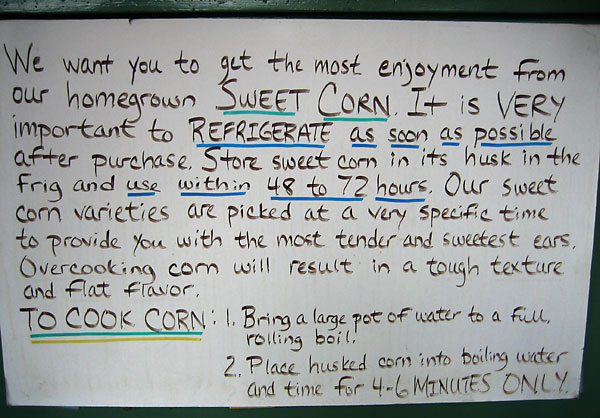 We want you to get the most enjoyment from
our homegrown SWEET CORN. It is VERY
important to REFRIGERATE as soon as possible
after purchase. Store sweet corn in its husk in the
frig and use within 48 to 72 hours. Our sweet
corn varieties are picked at a very specific time
to provide you with the most tender and sweetest ears.
Overcooking corn will result in a tough texture
and flat flavor.
TO COOK CORN: 1. Bring a large pot of water to a full,
rolling boil.
2. Place husked corn into boiling water
and time for 4-6 MINUTES ONLY.